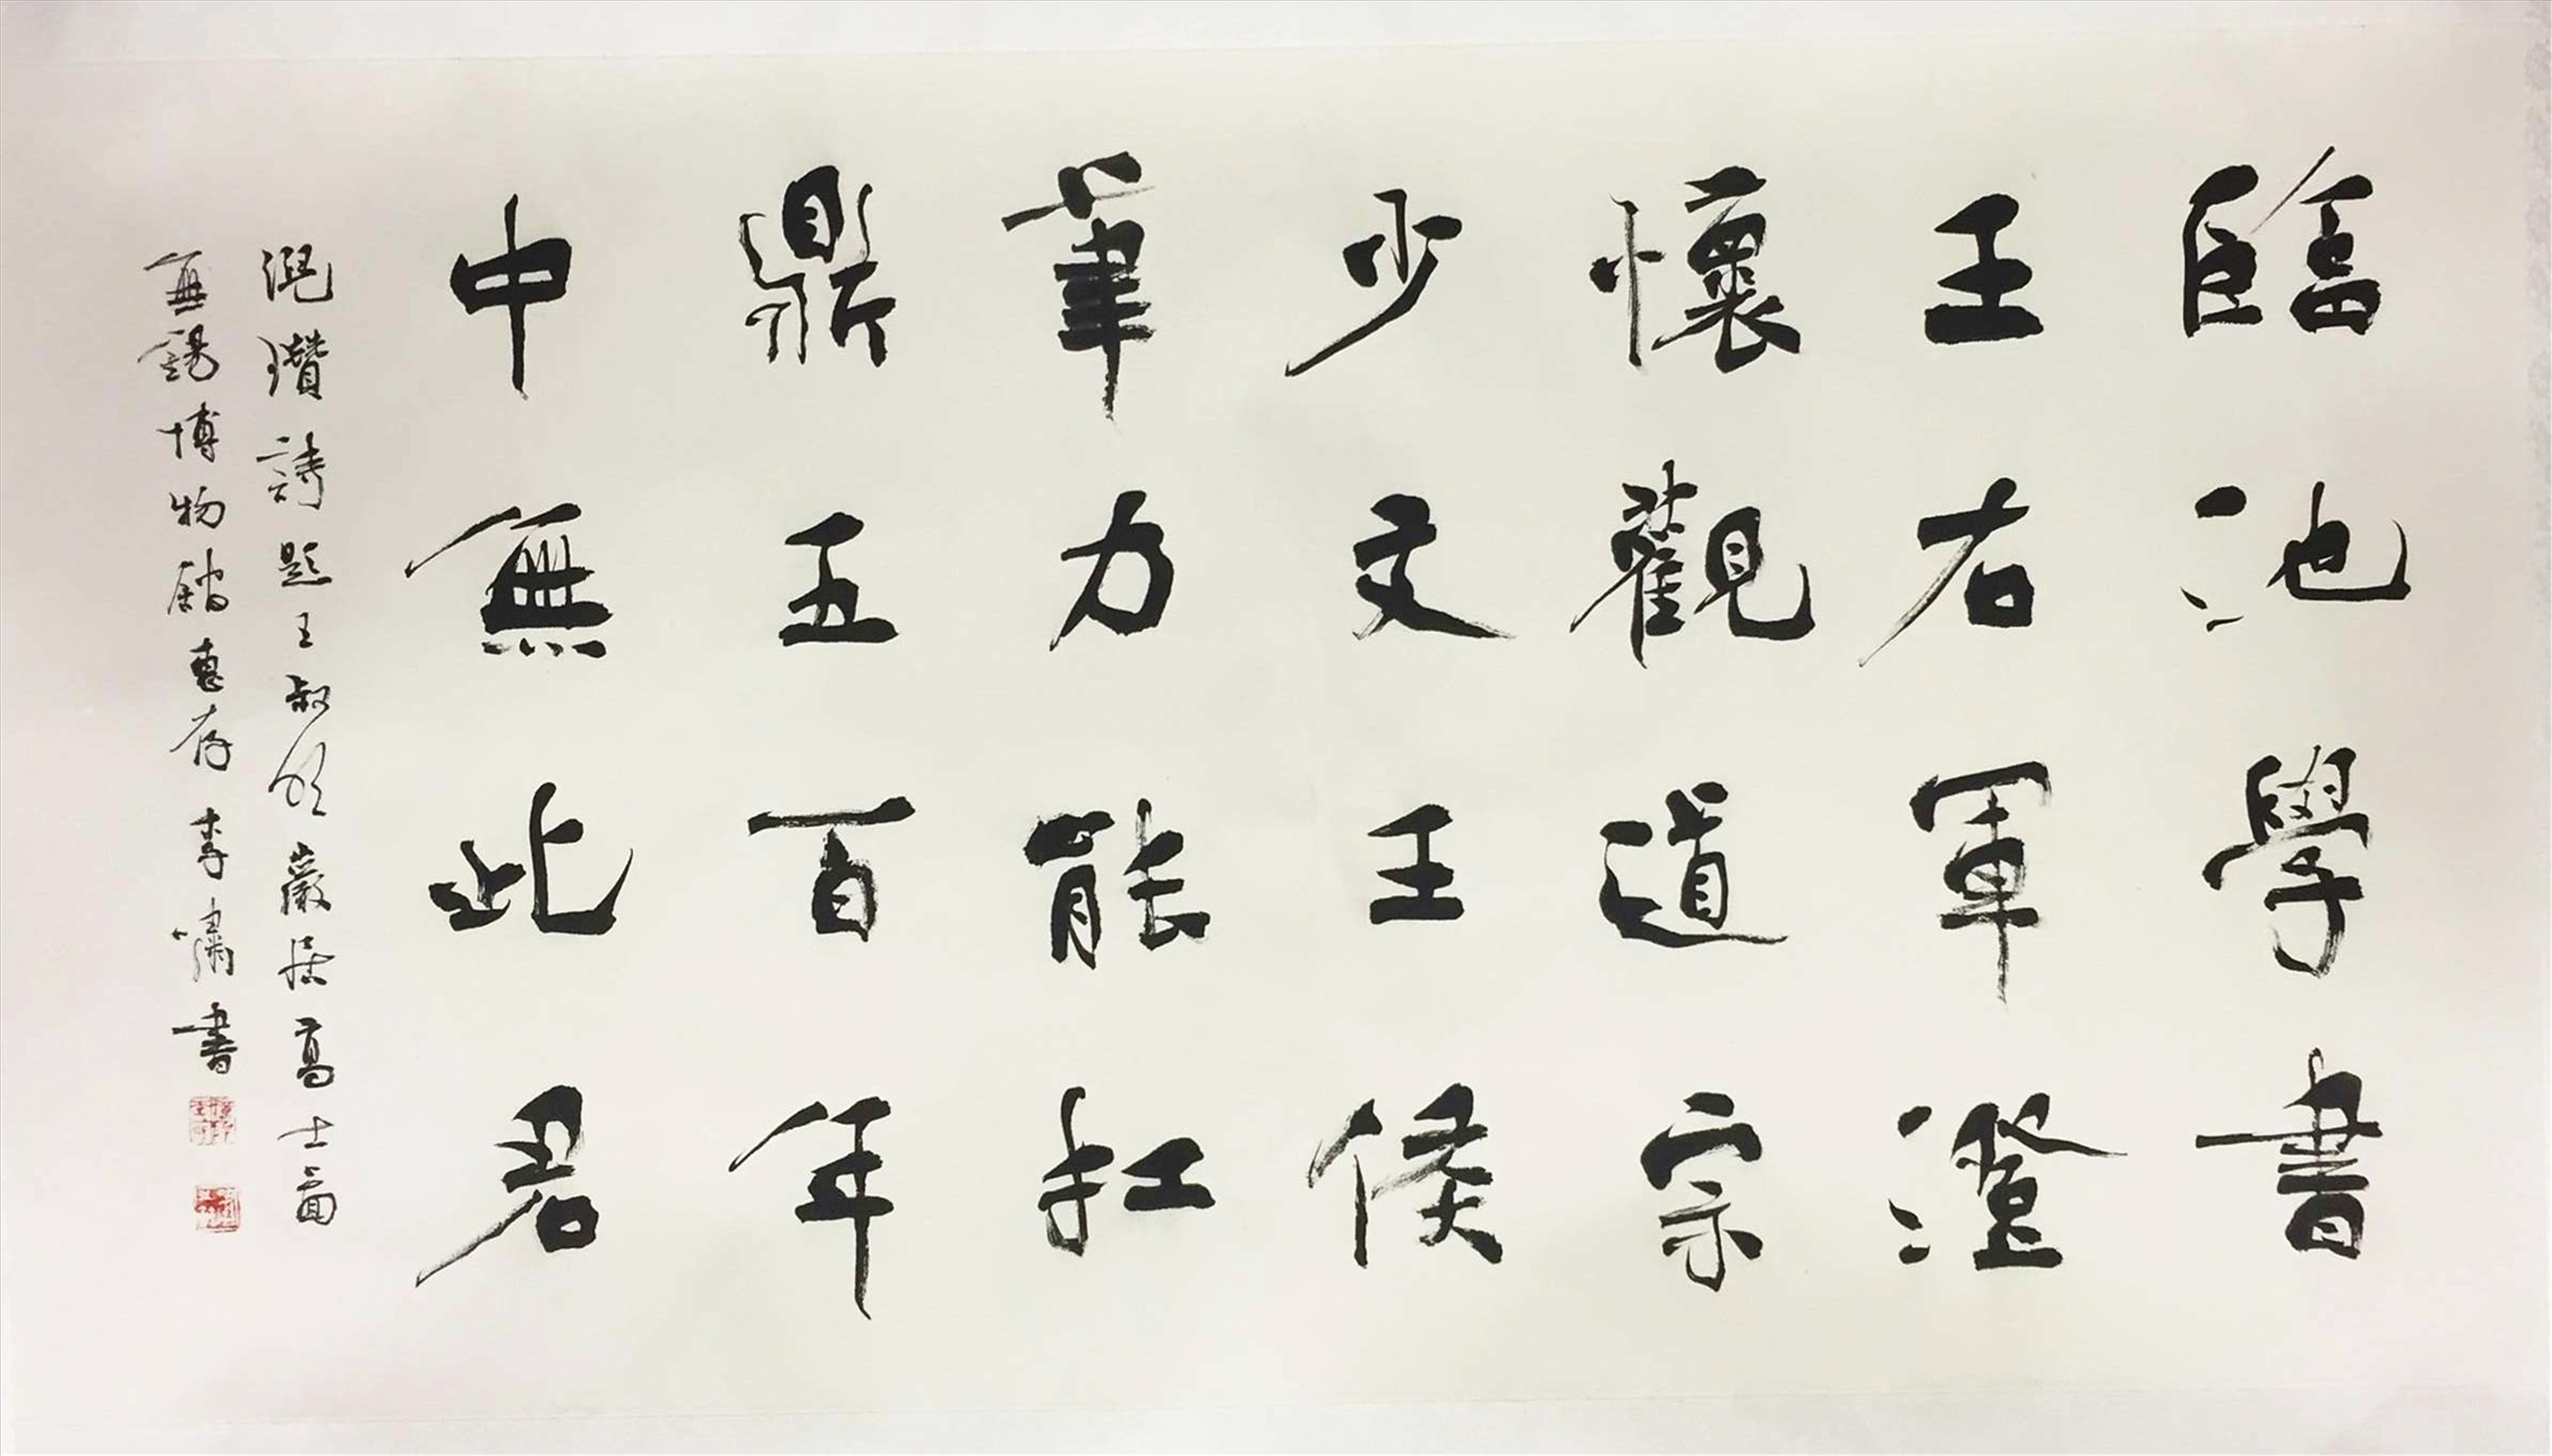 臨池學書
王右軍澄
懷觀道宗
少文王侯
筆力能扛
鼎五百年
中無此君
倪瓚詩題王叔明巖居高士圖
無錫博物館惠存李嘯書